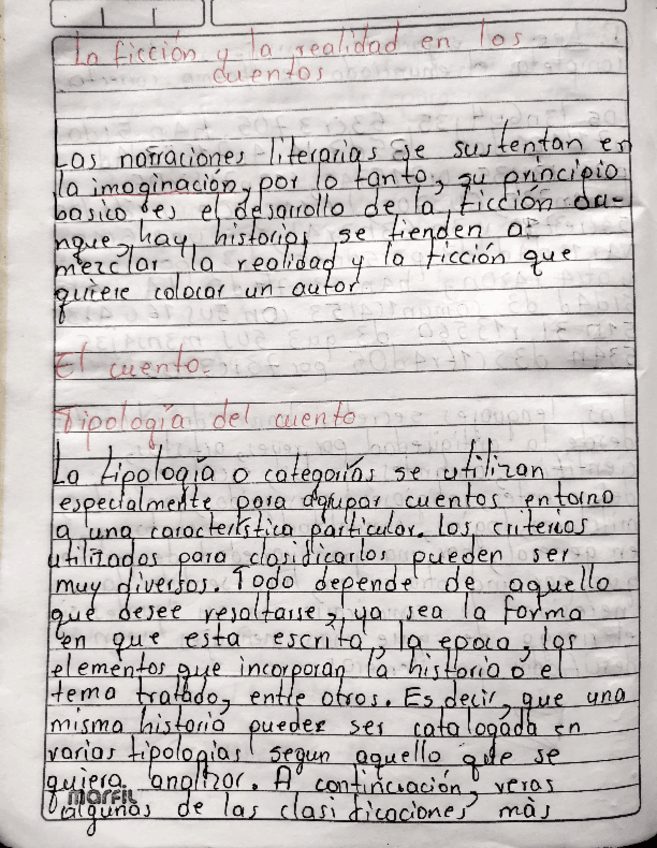 La ficción y la realidad en los
cuentos
Las narraciones literarias se sustentan en
la imaginación, por lo tanto, su principio
basico es el desarrollo de la ficción au-
nque, hay historias se tienden a
mezclar la realidad y la ficción que
quiere colocar un autor
El cuento.
Tipología del cuento
La tipología o categorías se utilizan
especialmente para agrupar cuentos entorno
a una característica particular. Los criterios
utilizados para clasificarlos pueden ser
muy diversos. Todo depende de aquello
que desee resaltarse, ya sea la forma
en que esta escrita, la epoca, los
elementos que incorporan la historia o el
tema tratado, entre otros. Es decir, que una
misma historia puedes ser catalogada en
varias tipologias segun aquello que se
quiera analizar. A continuación, veras
marfil
algunas de las clasificaciones màs